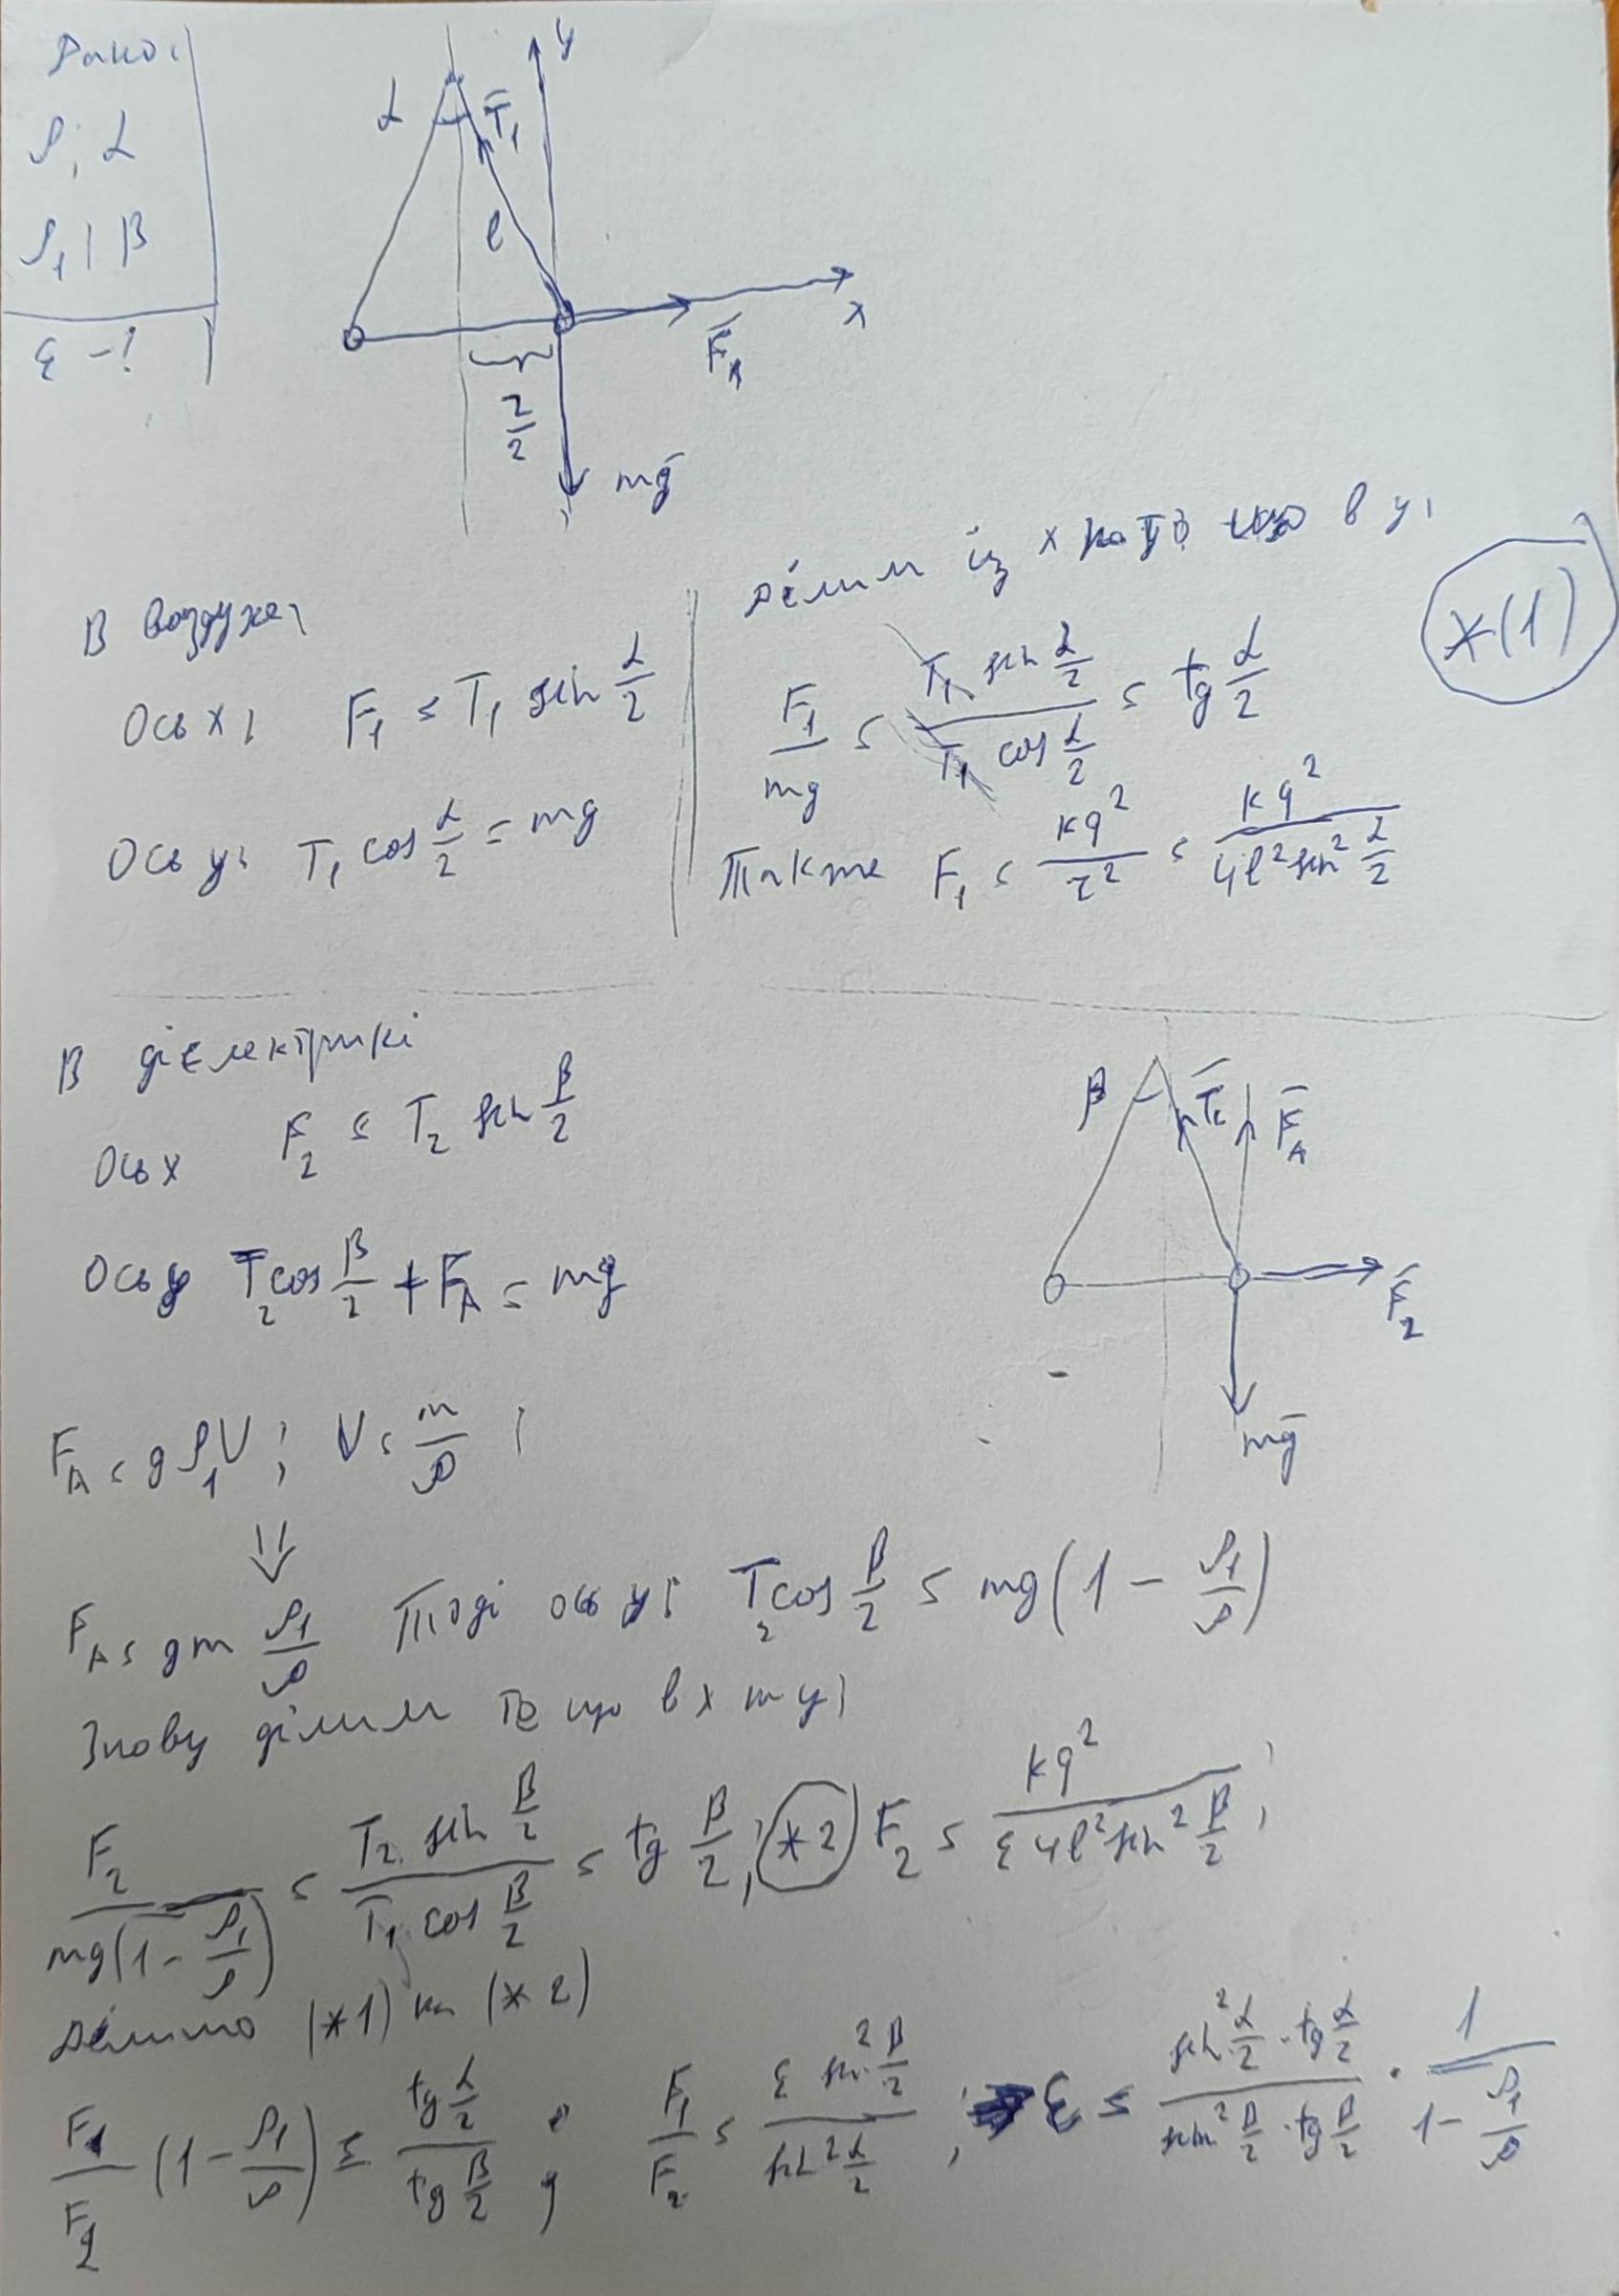 Дано:
ρ, α
ρ₁, β
ε - ?
α T̄₁ y
l
x
F̄₁
r/2
mḡ
В воздухе,
Ось x: F₁ = T₁ sin α/2
Ось y: T₁ cos α/2 = mg
Ділим із x на в y:
*(1)
F₁/mg = T₁ sin α/2 / T₁ cos α/2 = tg α/2
Також F₁ = kq²/r² = kq²/4l² sin² α/2
В діелектрикі
Ось x F₂ = T₂ sin β/2
Ось y T₂ cos β/2 + F_A = mg
β T̄₂ F̄_A
F̄₂
mḡ
F_A = gρ₁V; V = m/ρ;
⇓
F_A = gm ρ₁/ρ Тоді ось y: T₂ cos β/2 = mg(1 - ρ₁/ρ)
Знову ділим те що в x та y;
F₂/mg(1 - ρ₁/ρ) = T₂ sin β/2 / T₁ cos β/2 = tg β/2; (*2) F₂ = kq²/ε4l² sin² β/2;
Ділимо (*1) на (*2)
F₁/F₂ (1 - ρ₁/ρ) = tg α/2 / tg β/2; F₁/F₂ = ε sin² β/2 / sin² α/2; ε = sin² α/2 · tg α/2 / sin² β/2 · tg β/2 · 1/1 - ρ₁/ρ